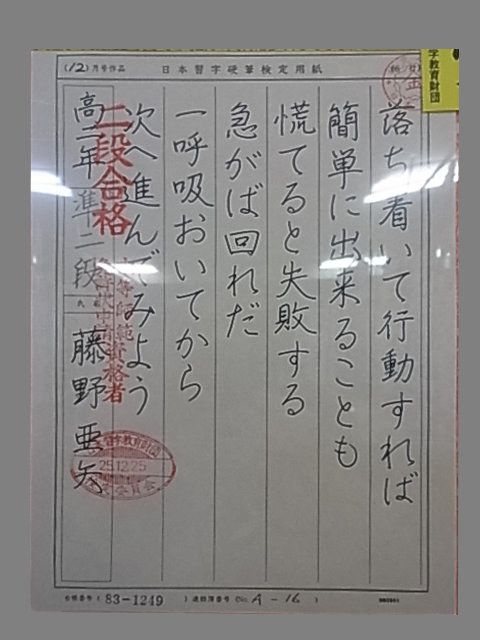 (12)月号作品 日本習字硬筆検定用紙
字教育財団
落ち着いて行動すれば
簡単に出来ることも
慌てると失敗する
急がば回れだ
一呼吸おいてから
次へ進んでみよう
二段合格
高二年 準二段 藤野亜矢
習字教育財団
25.12.25
(83-1249) (No. A-16)